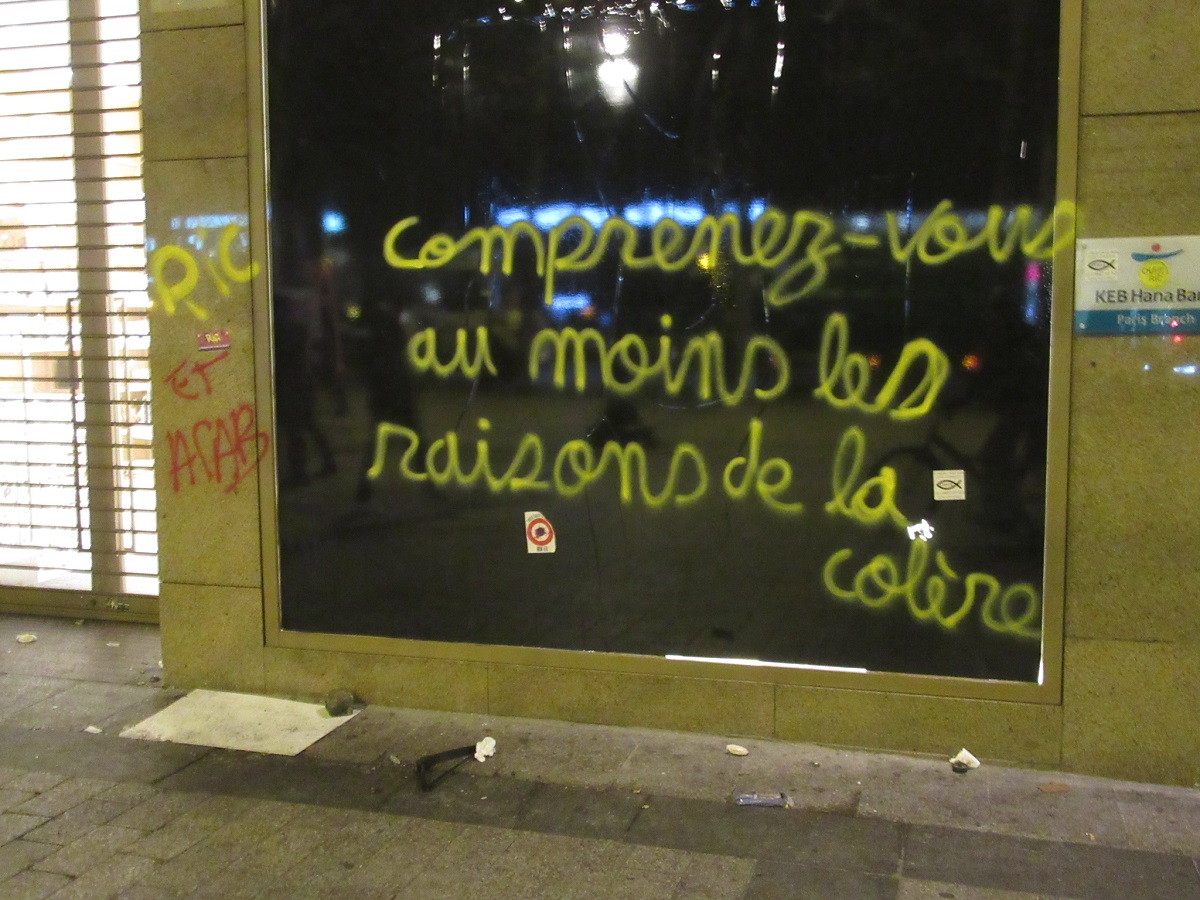 comprenez-vous
au moins les
raisons de la
colère
RIC
ET
ACAB
KEB Hana Ban
Paris Branch